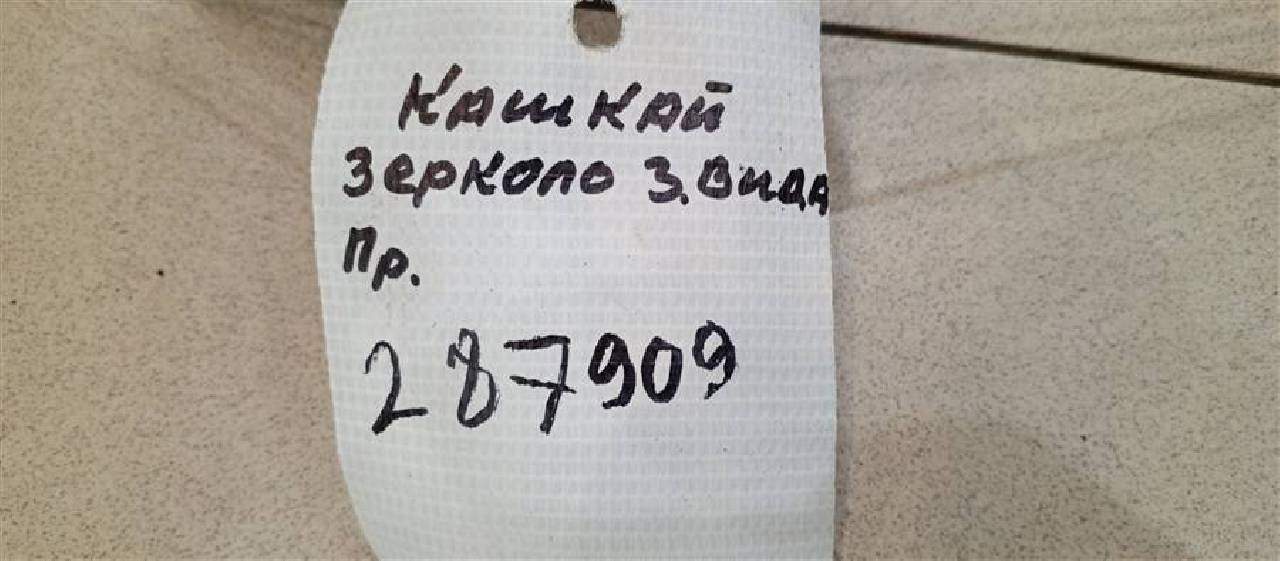 Кашкай
Зеркало з.вида
Пр.
287909